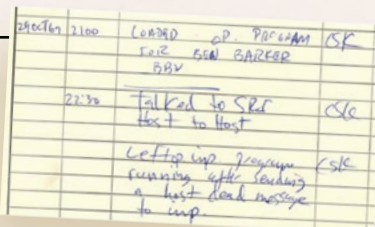 29 OCT 69 2100 LOADED OP. PROGRAM CSK
FOR BEN BARKER
BBV
22:30 Talked to SRI CSK
Host to Host
Left op imp program CSK
running after sending
a host dead message
to imp.